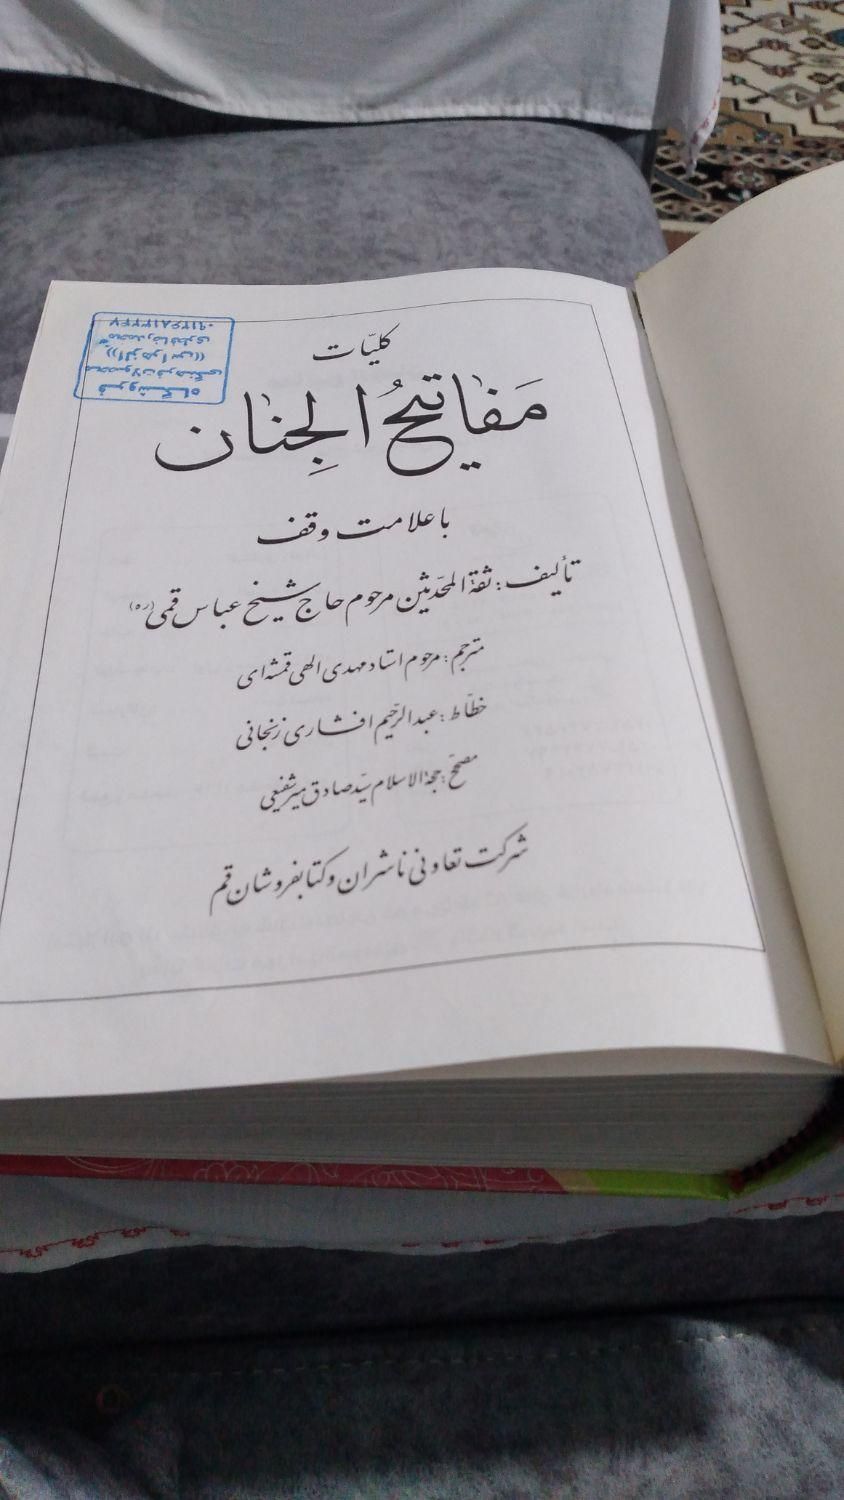 کلیّات
مَفاتیحُ الجِنان
با علامت وقف
تألیف: ثقةالمحدّثین مرحوم حاج شیخ عباس قمی (ره)
مترجم: مرحوم استاد مهدی الهی قمشه‌ای
خطّاط: عبدالرّحیم افشاری زنجانی
مصحّح: حجةالاسلام سیّد صادق میرشفیعی
شرکت تعاونی ناشران و کتابفروشان قم
فروشگاه
محصولات فرهنگی
((الزهرا س))